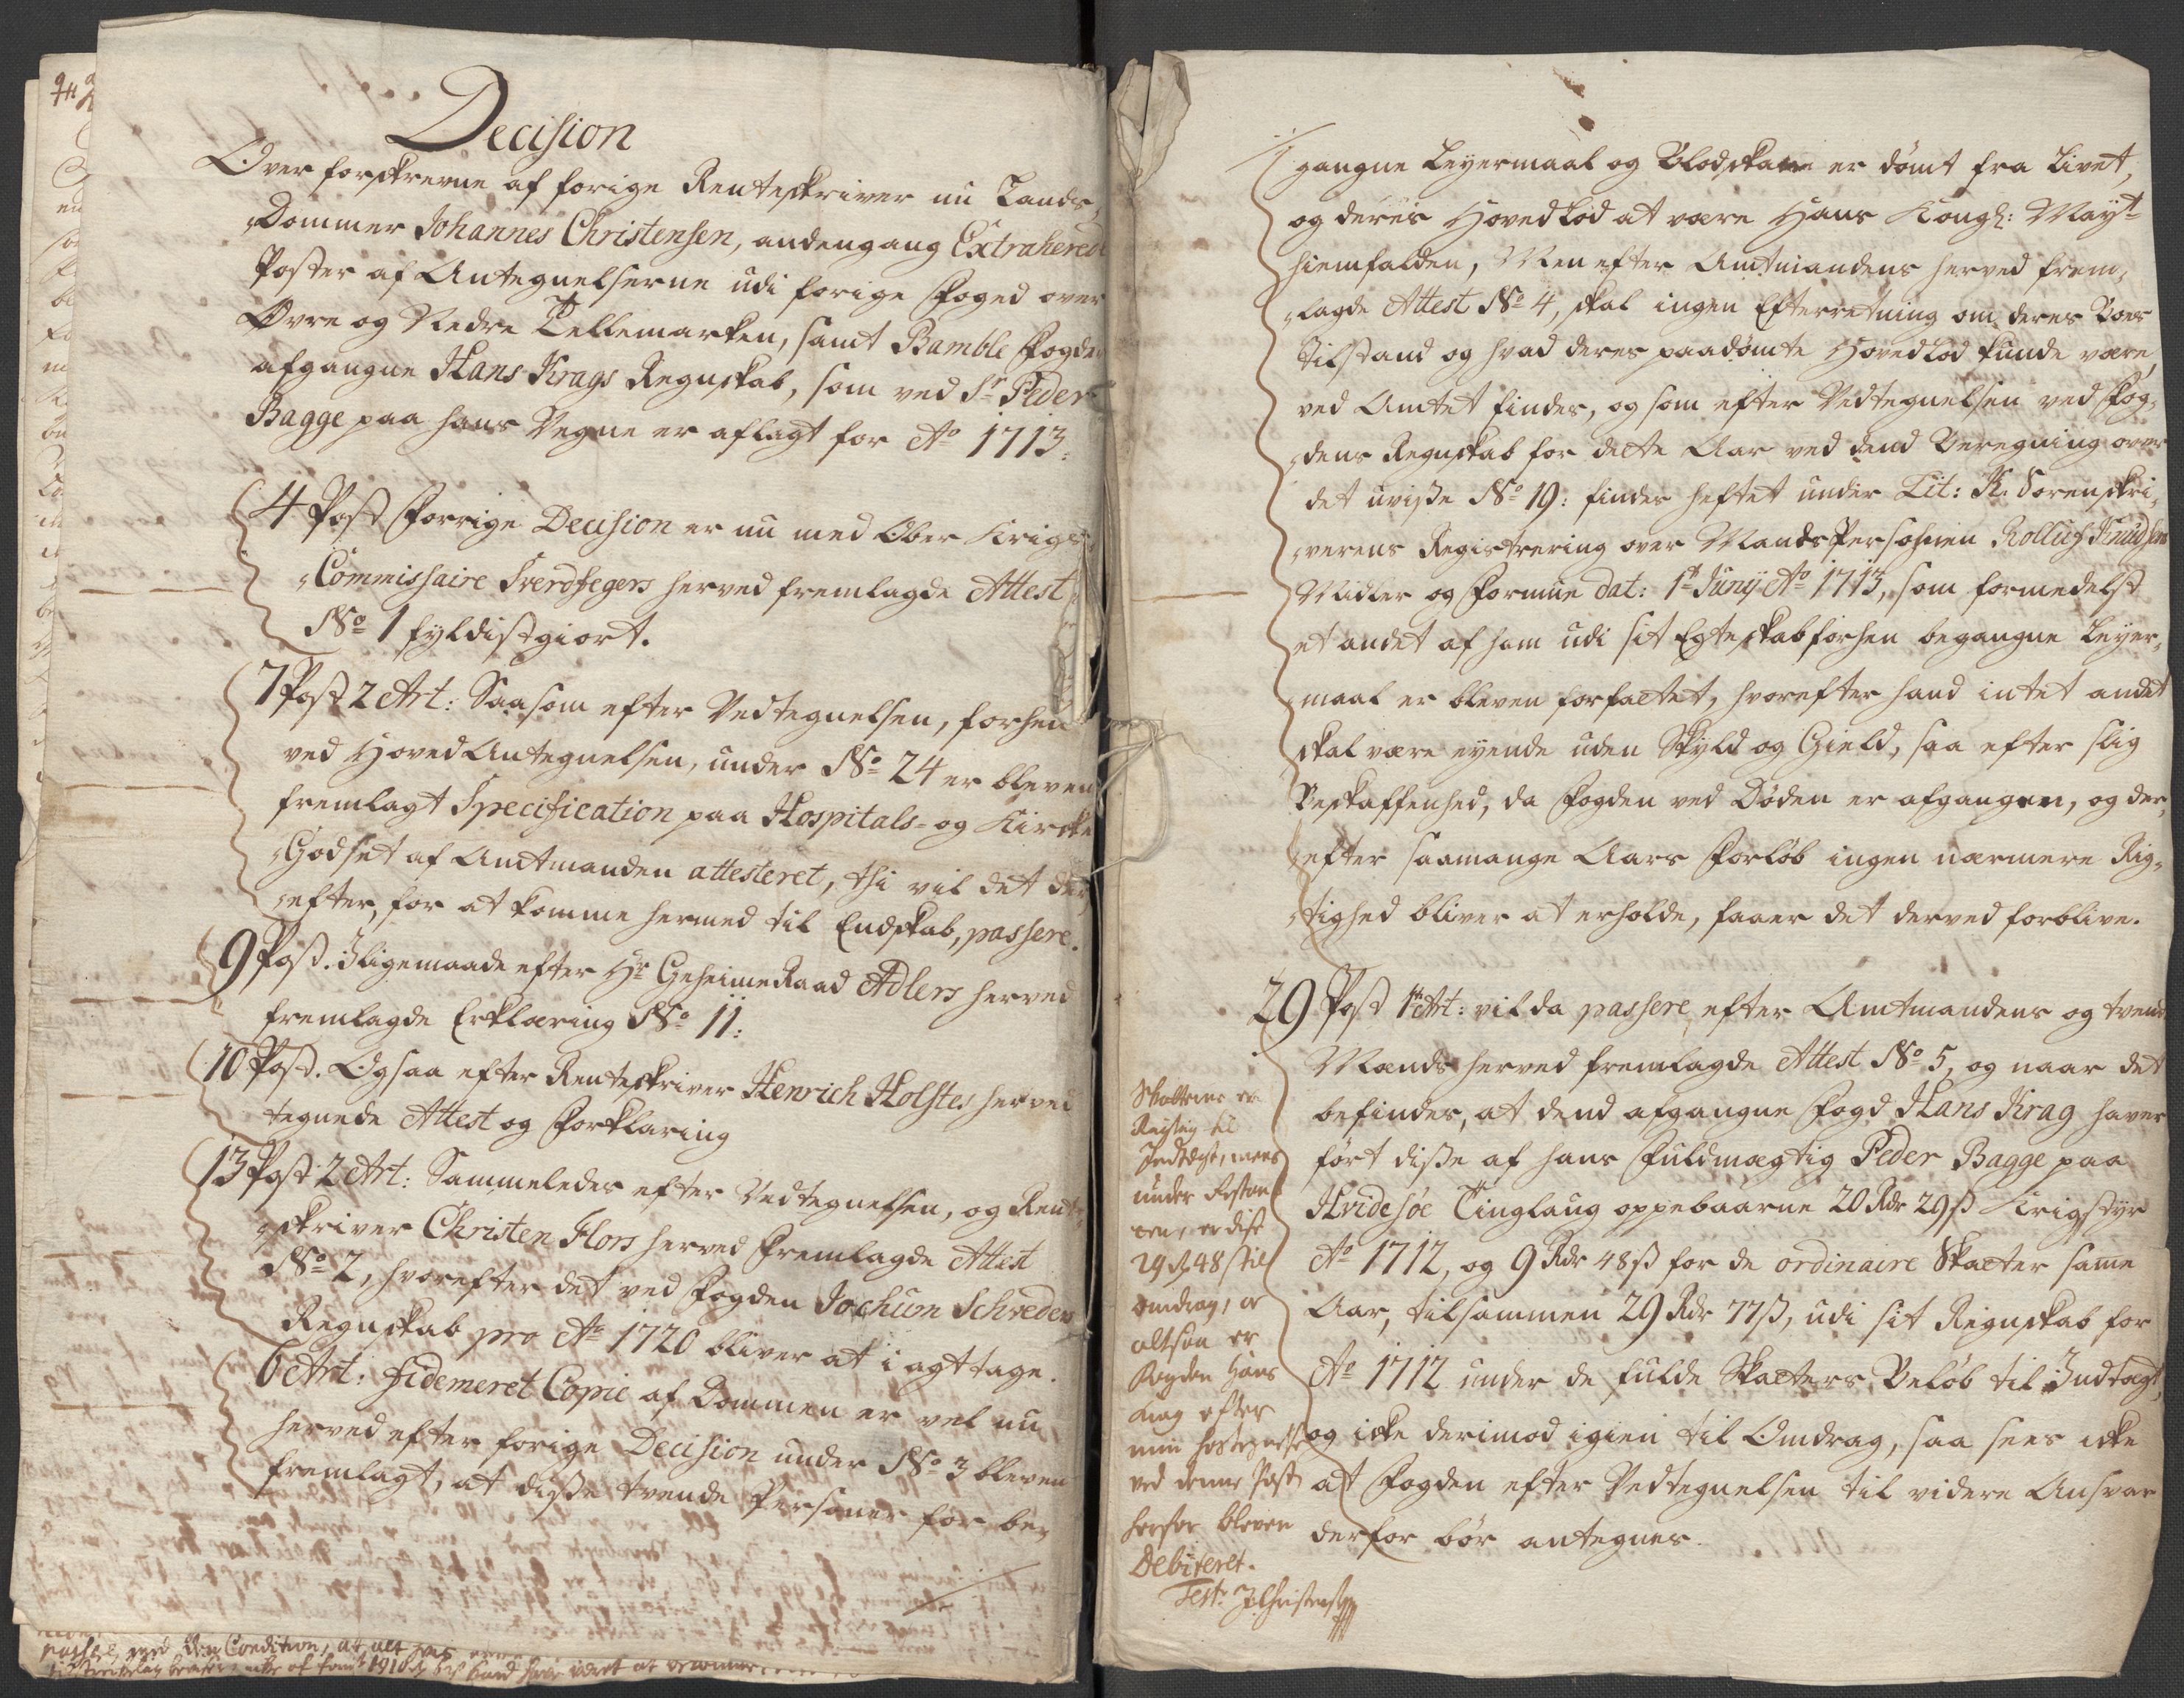 Decision
Over forskrevne af forige Renteskriver nu Lands,
Dommer Johannes Christensen, andengang Extraherede
Poster af Antegnelserne udi forige Foged over
Øvre og Nedre Tellemarken, samt Bamble Fogderi
afgangne Hans Krags Regnskab, som ved Sr. Peder
Bagge paa hans Vegne er aflagt for Ao 1713:
4 Post Forrige Decision er nu med Ober Krigs
Commissaire Sverdfegers herved fremlagde Attest
No 1 fyldistgiort.
7 Post 2 Art: Saasom efter Vedtegnelsen, forhen
ved Hoved Antegnelsen, under No 24 er bleven
fremlagt Specification paa Hospitals- og Kircke
Godset af Amtmanden attesteret, thi vil det der,
efter, for at komme hermed til Endskab, passere.
9 Post. Iligemaade efter Hr. Geheime Raad Adlers herved
fremlagde Erklæring No 11:
10 Post. Ogsaa efter Renteskriver Henrich Holstes herved
tegnede Attest og Forklaring
13 Post 2 Art: Sammeledes efter Vedtegnelsen, og Rente,
skriver Christen Flors herved Fremlagde Attest
No 2, hvorefter det ved Fogden Jochum Schreder
Regnskab pro Ao 1720 bliver at i agt tage.
6 Art: Fidemeret Copie af Dommen er vel nu
herved efter forige Decision under No 3 bleven
fremlagt, at disse tvende Personer for be,
passere, med den Condition, at alt
gangne Leyermaal og Blodskam er dømt fra Livet,
og deris Hovedlod at være Hans Kongl: Mayt
hiemfalden, Men efter Amtmandens herved frem,
lagde Attest No 4, skal ingen Efterretning om deres Boes
Tilstand og hvad deres paadømte Hovedlod kunde være,
ved Amtet findes, og som efter Vedtegnelsen ved Fog,
dens Regnskab for dette Aar ved dend Beregning over
det uvisse No 19: findes heftet under Lit: K. Sorenskri,
verens Registrering over Mands Persohnen Rolluf Knudsens
Midler og Formue dat: 1te Junij Ao 1713, som formedelst
et andet af ham udi sit Egteskab forhen begangne Leyer,
maal er bleven forfattet, hvorefter hand intet andet
skal være eyende uden Skyld og Gield, saa efter slig
Beskaffenhed, da Fogden ved Døden er afgangen, og der,
efter saamange Aars Forløb ingen nærmere Rig,
tighed bliver at erholde, faaer det derved forblive.
29 Post 1te Art: vil da passere efter Amtmandens og tvende
Mænds herved fremlagde Attest No 5, og naar det
befindes, at dend afgangne Fogd Hans Krag haver
ført disse af hans Fuldmægtig Peder Bagge paa
Hvidesøe Tinglaug oppebaarne 20 Rdr 29 ß Krigstyr
Ao 1712, og 9 Rdr 48 ß for de ordinaire Skatter same
Aar, tilsammen 29 Rdr 77 ß, udi sit Regnskab for
Ao 1712 under de fulde Skatters Beløb til Indtægt,
og icke derimod igien til Omdrag, saa sees icke
at Fogden efter Vedtegnelsen til videre Ansvar
derfor bør antegnes.
Skatterne er
Rigtig til
Indtægt, mens
under Restan
cen, er disse
29 48 til
omdrag, er
altsaa er
Fogden Hans
Krag efter
min Hostegnelse
ved denne Post
herfor bleven
Debiteret.
Test: JChristensen